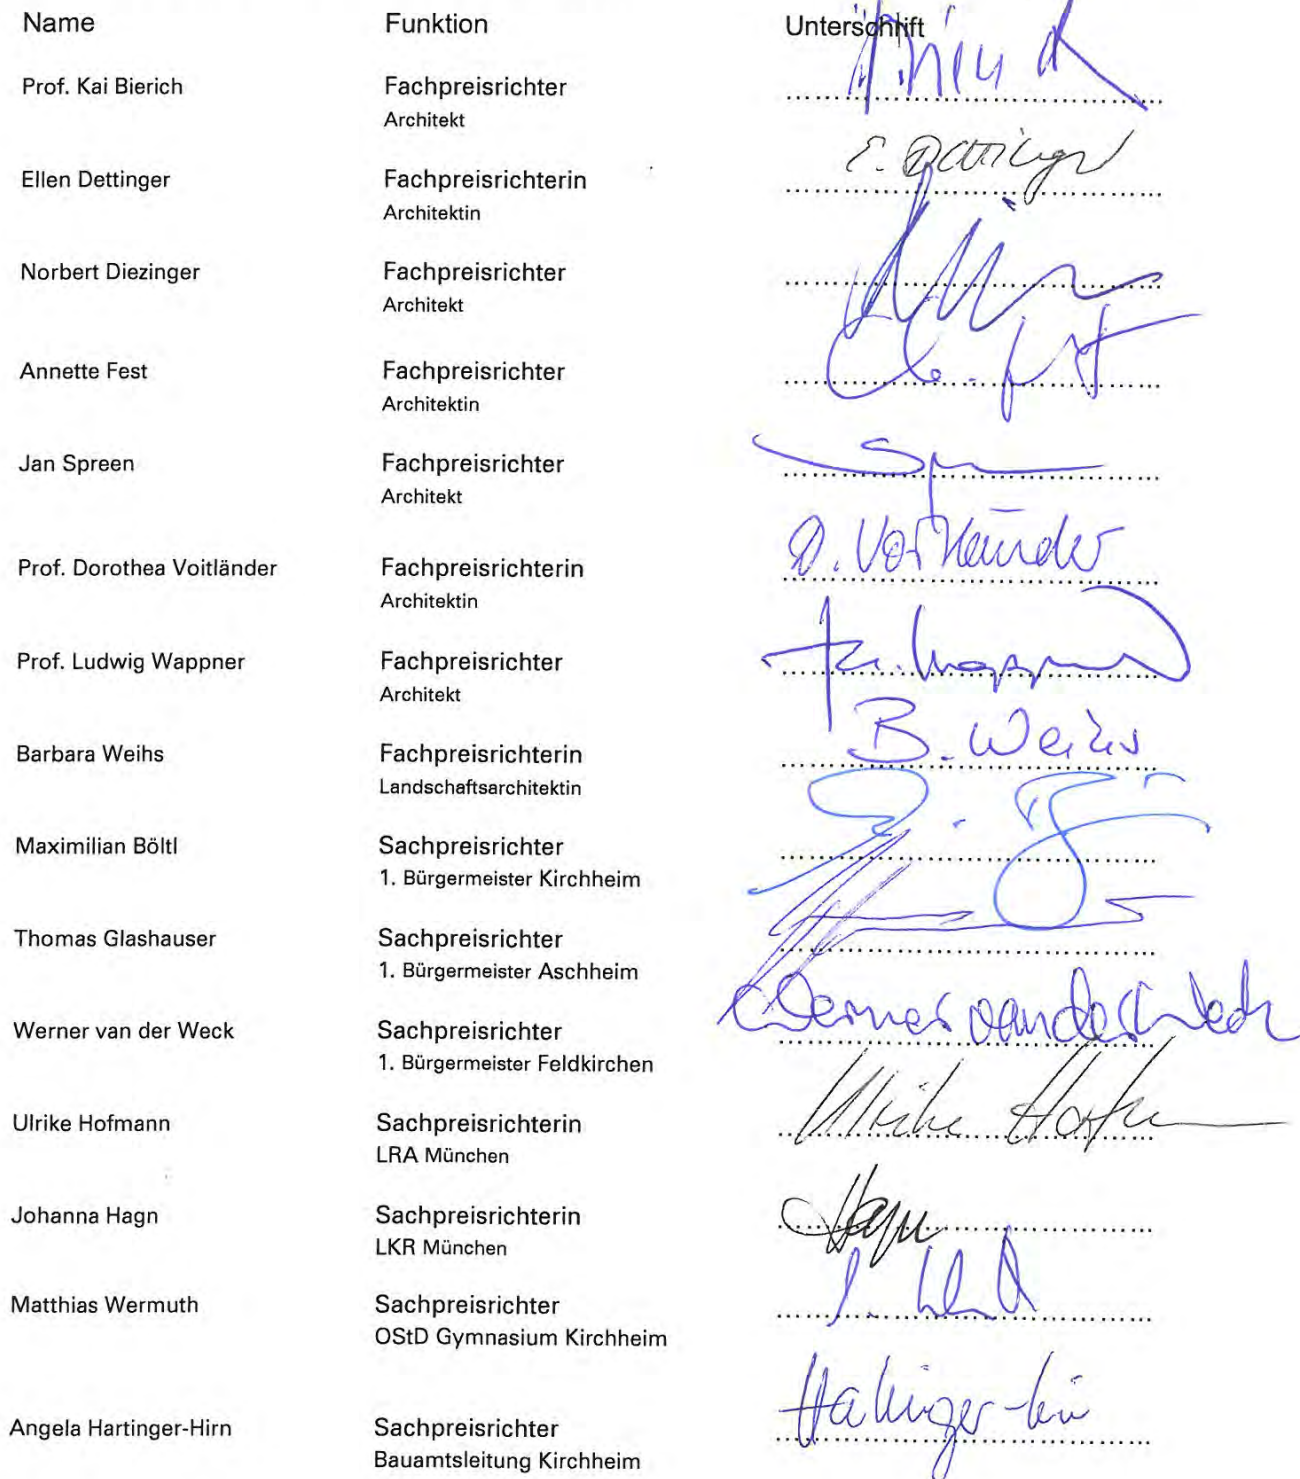 Name Funktion Unterschrift
Prof. Kai Bierich Fachpreisrichter
Architekt
Ellen Dettinger Fachpreisrichterin E. Dettinger
Architektin
Norbert Diezinger Fachpreisrichter
Architekt
Annette Fest Fachpreisrichter
Architektin
Jan Spreen Fachpreisrichter
Architekt
Prof. Dorothea Voitländer Fachpreisrichterin D. Voitländer
Architektin
Prof. Ludwig Wappner Fachpreisrichter
Architekt
Barbara Weihs Fachpreisrichterin B. Weihs
Landschaftsarchitektin
Maximilian Böltl Sachpreisrichter
1. Bürgermeister Kirchheim
Thomas Glashauser Sachpreisrichter
1. Bürgermeister Aschheim
Werner van der Weck Sachpreisrichter Werner van der Weck
1. Bürgermeister Feldkirchen
Ulrike Hofmann Sachpreisrichterin Ulrike
LRA München
Johanna Hagn Sachpreisrichterin Hagn
LKR München
Matthias Wermuth Sachpreisrichter
OStD Gymnasium Kirchheim
Angela Hartinger-Hirn Sachpreisrichter Hartinger-Hirn
Bauamtsleitung Kirchheim